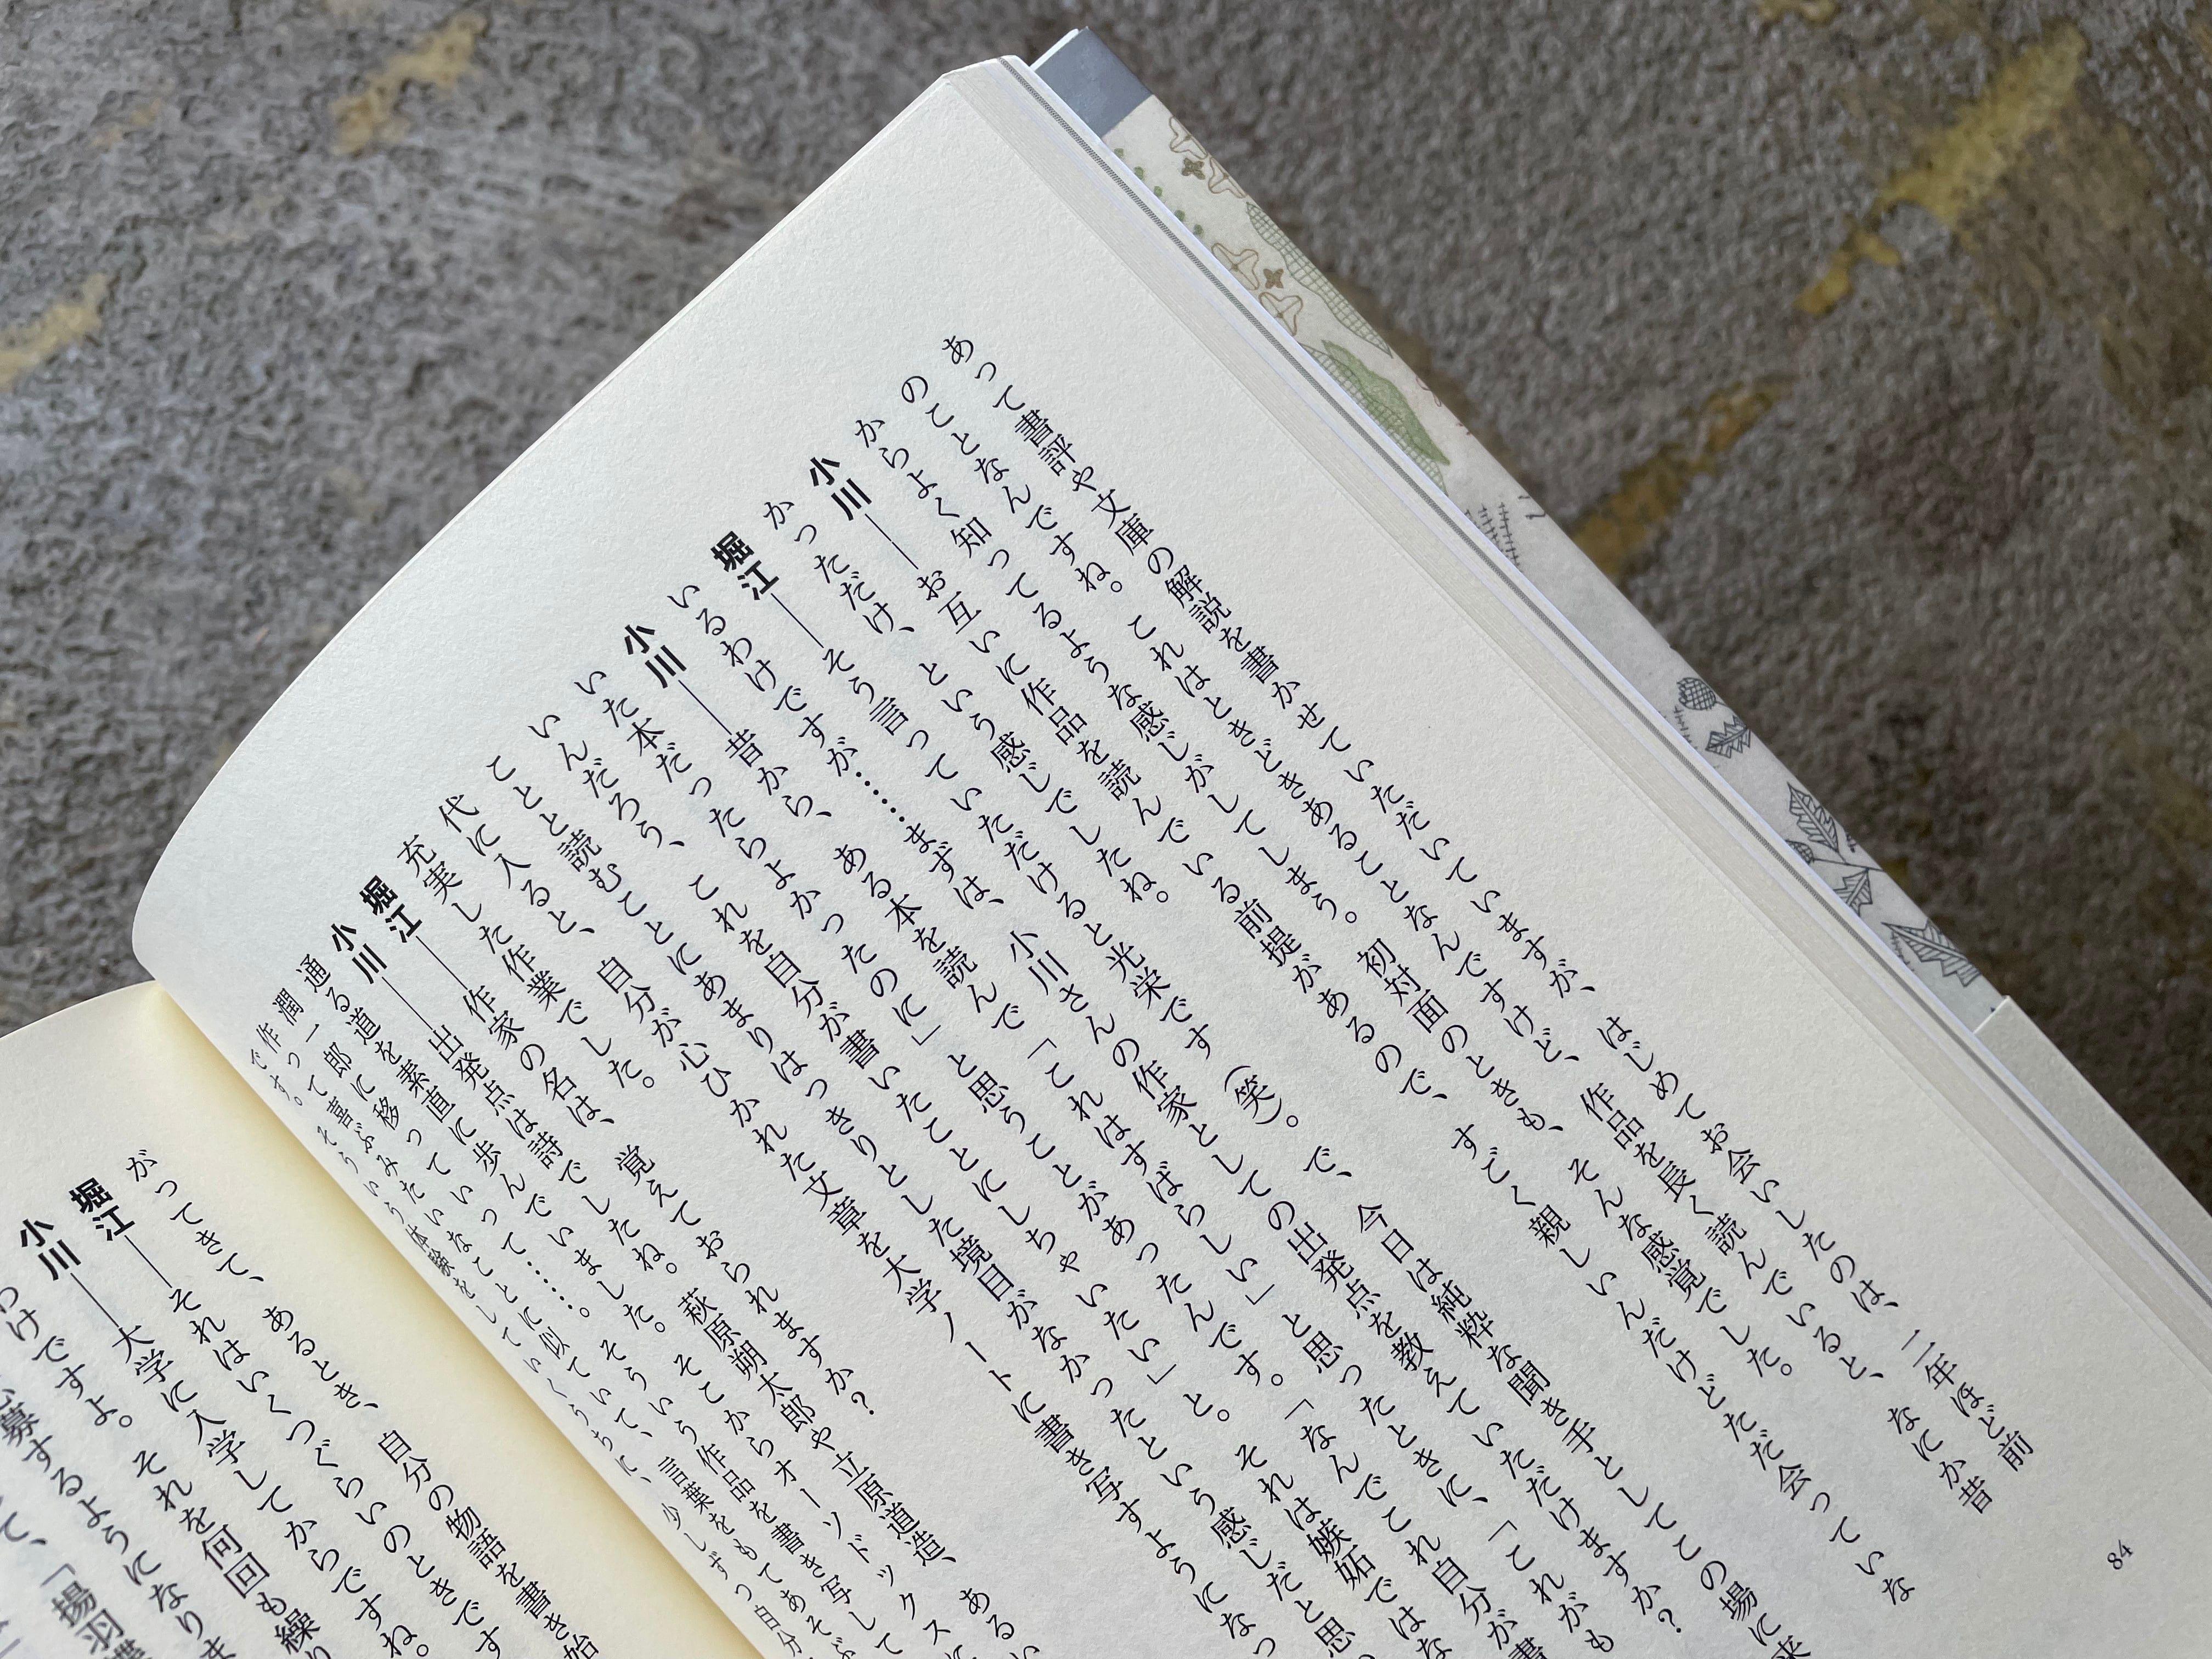 あって書評や文庫の解説を書かせていただいていますが、はじめてお会いしたのは、二年ほど前
のことなんですね。これはときどきあることなんですけど、作品を長く読んでいると、なにか昔
からよく知ってるような感じがしてしまう。初対面のときも、そんな感覚でした。
小川──お互いに作品を読んでいる前提があるので、すごく親しいんだけどただ会っていな
かっただけ、という感じでしたね。
堀江──そう言っていただけると光栄です（笑）。で、今日は純粋な聞き手としてこの場に来
いるわけですが……まずは、小川さんの作家としての出発点を教えていただけますか？
小川──昔から、ある本を読んで「これはすばらしい」と思ったときに、「これがも
いた本だったらよかったのに」と思うことがあったんです。「なんでこれ自分が書
いんだろう、これを自分が書いたことにしちゃいたい」と。それは嫉妬ではな
ことと読むことにあまりはっきりとした境目がなかったという感じだと思
代に入ると、自分が心ひかれた文章を大学ノートに書き写すようになっ
充実した作業でした。
堀江──作家の名は、覚えておられますか？
小川──出発点は詩でしたね。萩原朔太郎や立原道造、あるい
通る道を素直に歩んでいました。そこからオーソドックスに
潤一郎に移っていって……。そういう作品を書き写して
作って喜ぶみたいなことに似ていて、言葉をもてあそぶ
です。そういう体験をしていくうちに、少しずつ自分
がってきて、あるとき、自分の物語を書き始
堀江──それはいくつぐらいのときです
小川──大学に入学してからですね。
わけですよ。それを何回も繰り
募するようになりま
て、「揚羽蝶
84